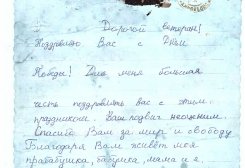 Дорогой ветеран!
Поздравляю Вас с Днём
Победы! Для меня большая
честь поздравлять вас с этим
праздником. Ваш подвиг неоценим.
Спасибо Вам за мир и свободу
Благодаря Вам живёт моя
прабабушка, бабушка, мама и я.